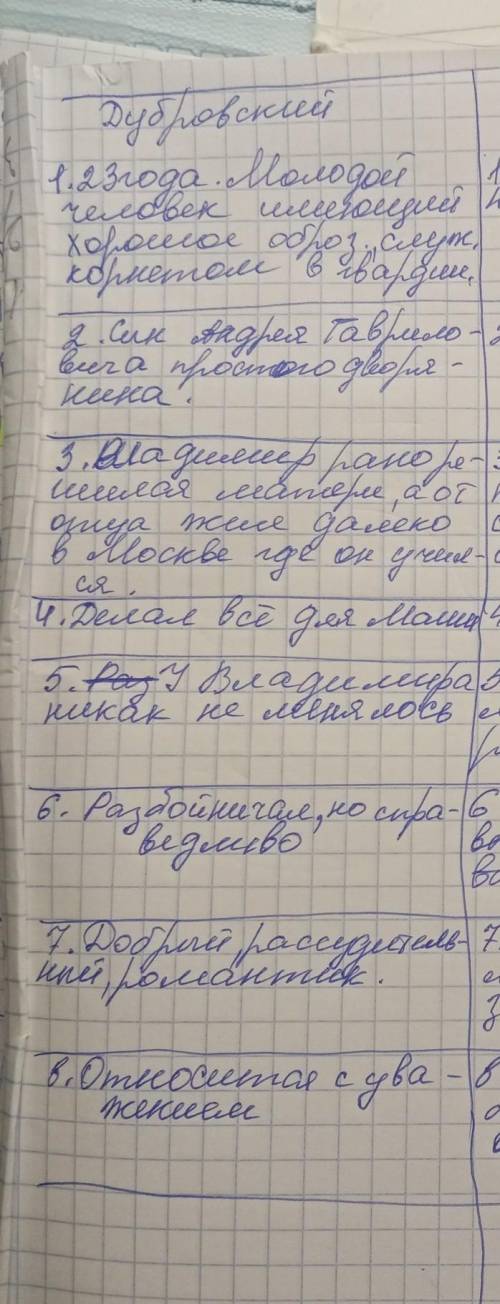 Дубровский
1. 23 года. Молодой
человек имеющий
хорошое образ. служ.
корнетом в гвардии.
2. Сын Андрея Гаврило-
вича простого дворя-
нина.
3. Владимир рано ре-
шился матери, а от
отца жил далеко
в Москве где он учил-
ся.
4. Делал всё для Маши
5. Раз У Владимира
никак не менялось
6. Разбойничал, но спра-
ведливо
7. Добрый, рассудитель-
ный, романтик.
8. Относится с ува-
жением